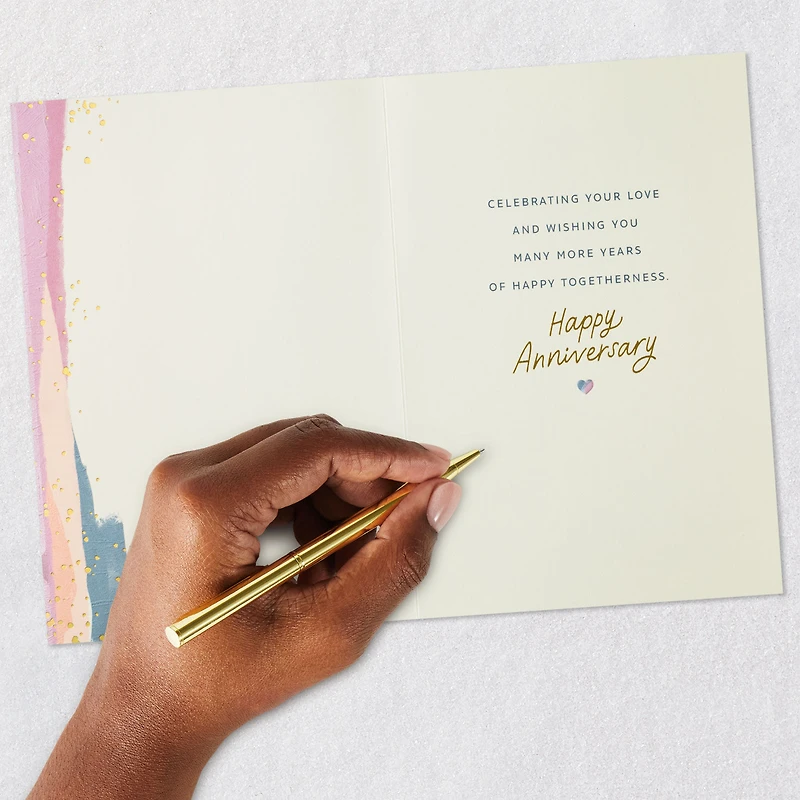 CELEBRATING YOUR LOVE
AND WISHING YOU
MANY MORE YEARS
OF HAPPY TOGETHERNESS.
Happy
Anniversary